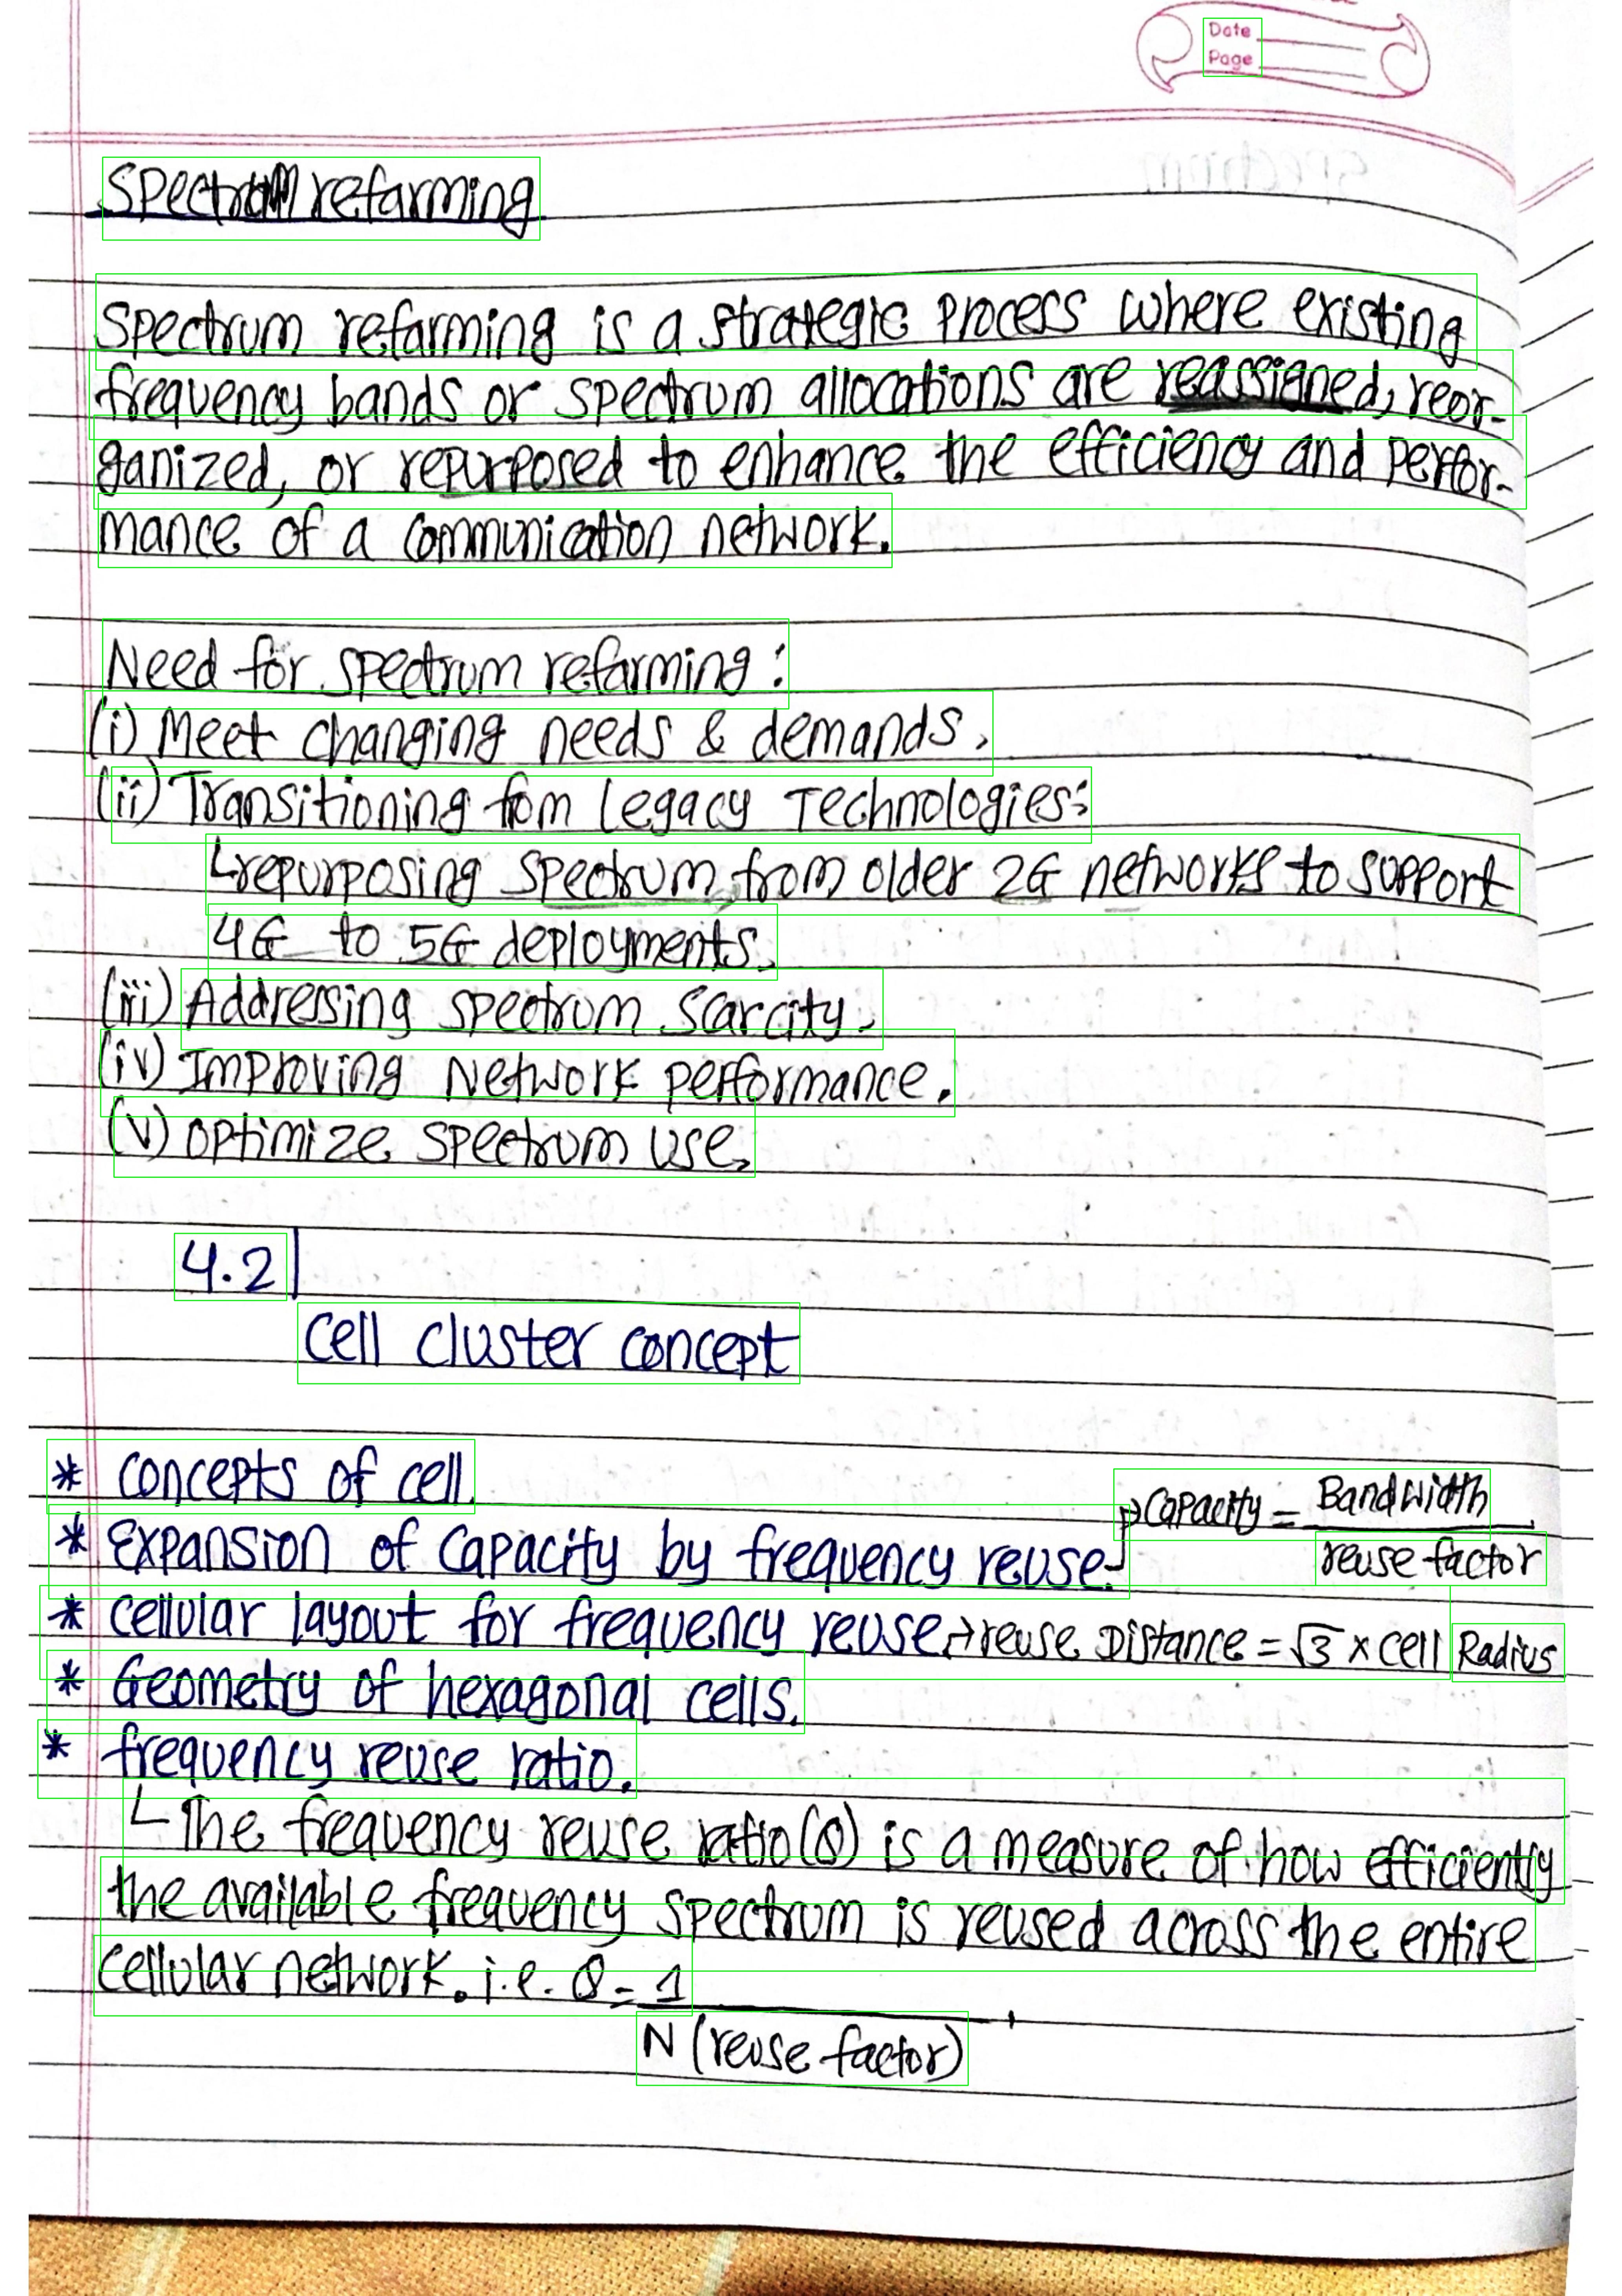 Date
Page
Spectrum refarming
Spectrum refarming is a strategic process where existing
frequency bands or spectrum allocations are reassigned, reor-
ganized, or repurposed to enhance the efficiency and perfor-
mance of a communication network.
Need for spectrum refarming:
(i) Meet changing needs & demands.
(ii) Transitioning fom Legacy Technologies:
↳repurposing spectrum from older 2G networks to support
4G to 5G deployments.
(iii) Addressing spectrum scarcity.
(iv) Improving Network performance.
(v) Optimize spectrum use.
4.2
Cell cluster concept
* Concepts of cell.
* Expansion of Capacity by frequency reuse. → Capacity = Bandwidth
reuse factor
* Cellular layout for frequency reuse. → reuse Distance = √3 × Cell Radius
* Geometry of hexagonal cells.
* frequency reuse ratio.
↳ The frequency reuse ratio(Q) is a measure of how efficiently
the available frequency spectrum is reused across the entire
cellular network. i.e. Q = 1
N (reuse factor)